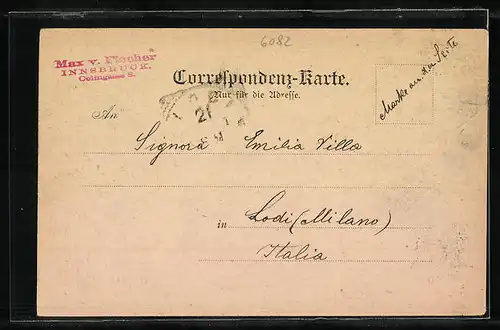 6082
Max v. Fischer
INNSBRUCK.
Colingasse 8.
Correspondenz-Karte.
Nur für die Adresse.
Marke an der Seite
An
Signora Emilia Villa
in Lodi (Milano)
Italia